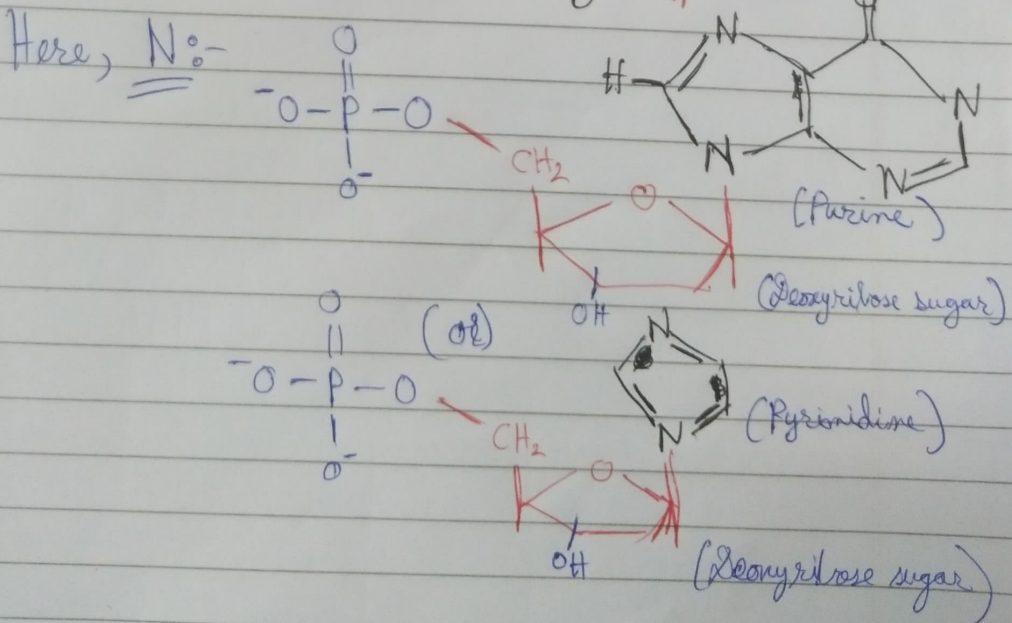 Here, N:-
O
⁻O-P-O
O⁻
CH₂
O
OH
H
N
N
N
N
(Purine)
(Deoxyribose sugar)
(or)
O
⁻O-P-O
O⁻
CH₂
O
OH
N
N
(Pyrimidine)
(Deoxyribose sugar)